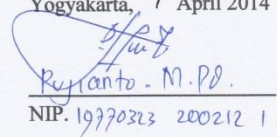 Yogyakarta, 7 April 2014
Pujianto. M.Pd.
NIP. 19770323 200212 1